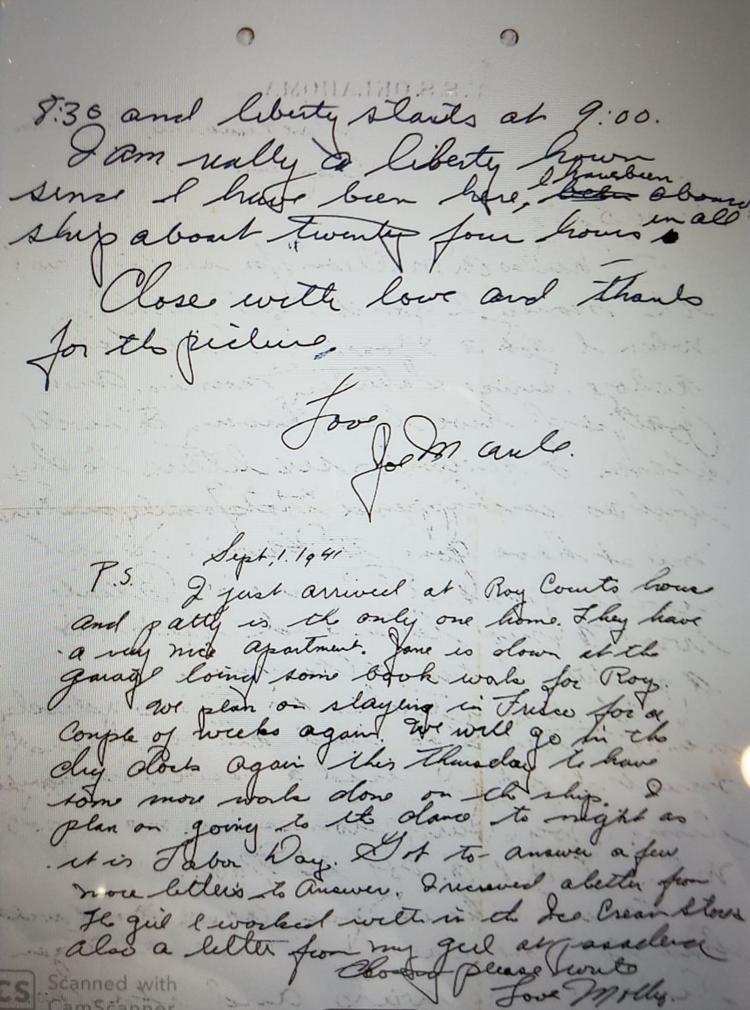 8:30 and liberty starts at 9:00.
I am really a liberty houn
sense I have been here, I have been aboard
ship about twenty four hours in all.
Close with love and thanks
for the picture.
Love
Joe M
Sept, 1. 1941
P.S. I just arrived at Roy Courts house
and patty is the only one home. They have
a very nice apartment. Jane is down at the
garage loing some book work for Roy.
We plan on staying in Frisco for a
couple of weeks again. We will go in the
dry docks again this Thursday to have
some more work done on the ship. I
plan on going to the dance to night as
it is Labor Day. Got to answer a few
more letters to answer. I recieved a letter from
the girl I worked with in the Ice Cream Store
Also a letter from my girl at
Closing please write
Love Molly.
U.S.S. OKLAHOMA
CS Scanned with
CamScanner